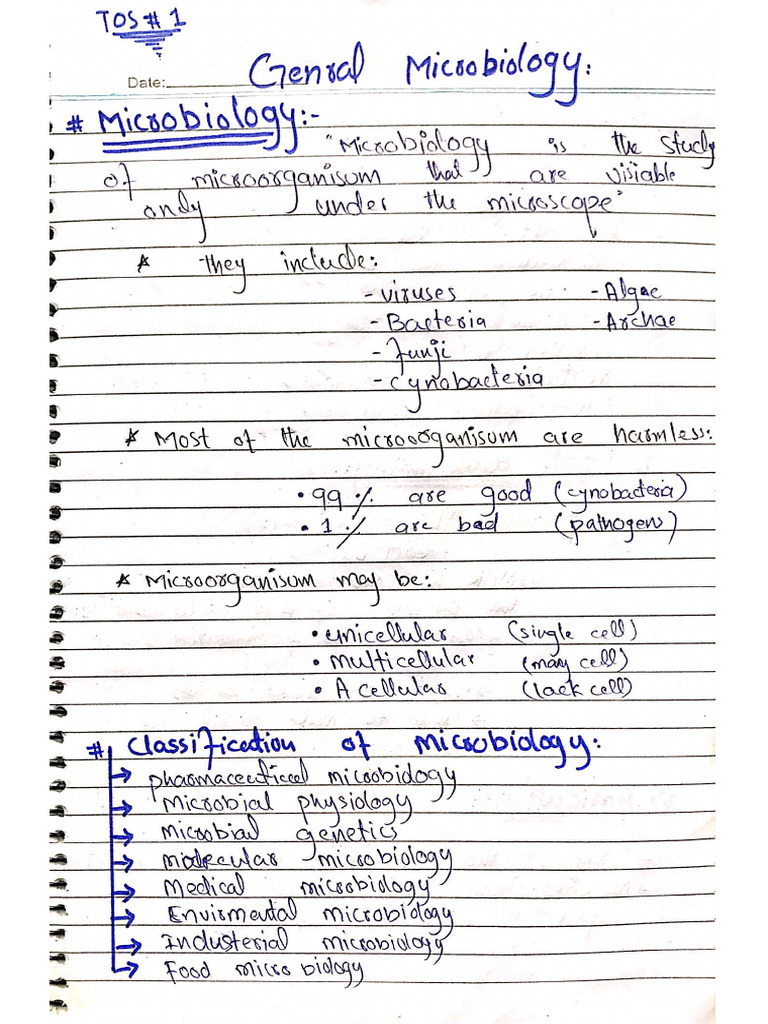 TOS # 1
Date:
Genral Microbiology:
# Microbiology:-
"Microbiology is the study
of microorganisum that are visiable
only under the microscope"
* They include:
- Viruses - Algae
- Bacteria - Archae
- Funji
- Cynobacteria
* Most of the microorganisum are harmless:
• 99% are good (cynobacteria)
• 1% are bad (pathogens)
* Microorganisum may be:
• unicellular (single cell)
• Multicellular (many cell)
• A cellular (lack cell)
# Classification of Microbiology:
→ pharmaceutical microbiology
→ Microbial physiology
→ microbial genetics
→ molecular microbiology
→ Medical microbiology
→ Envirmental microbiology
→ Industerial microbiology
→ Food microbiology